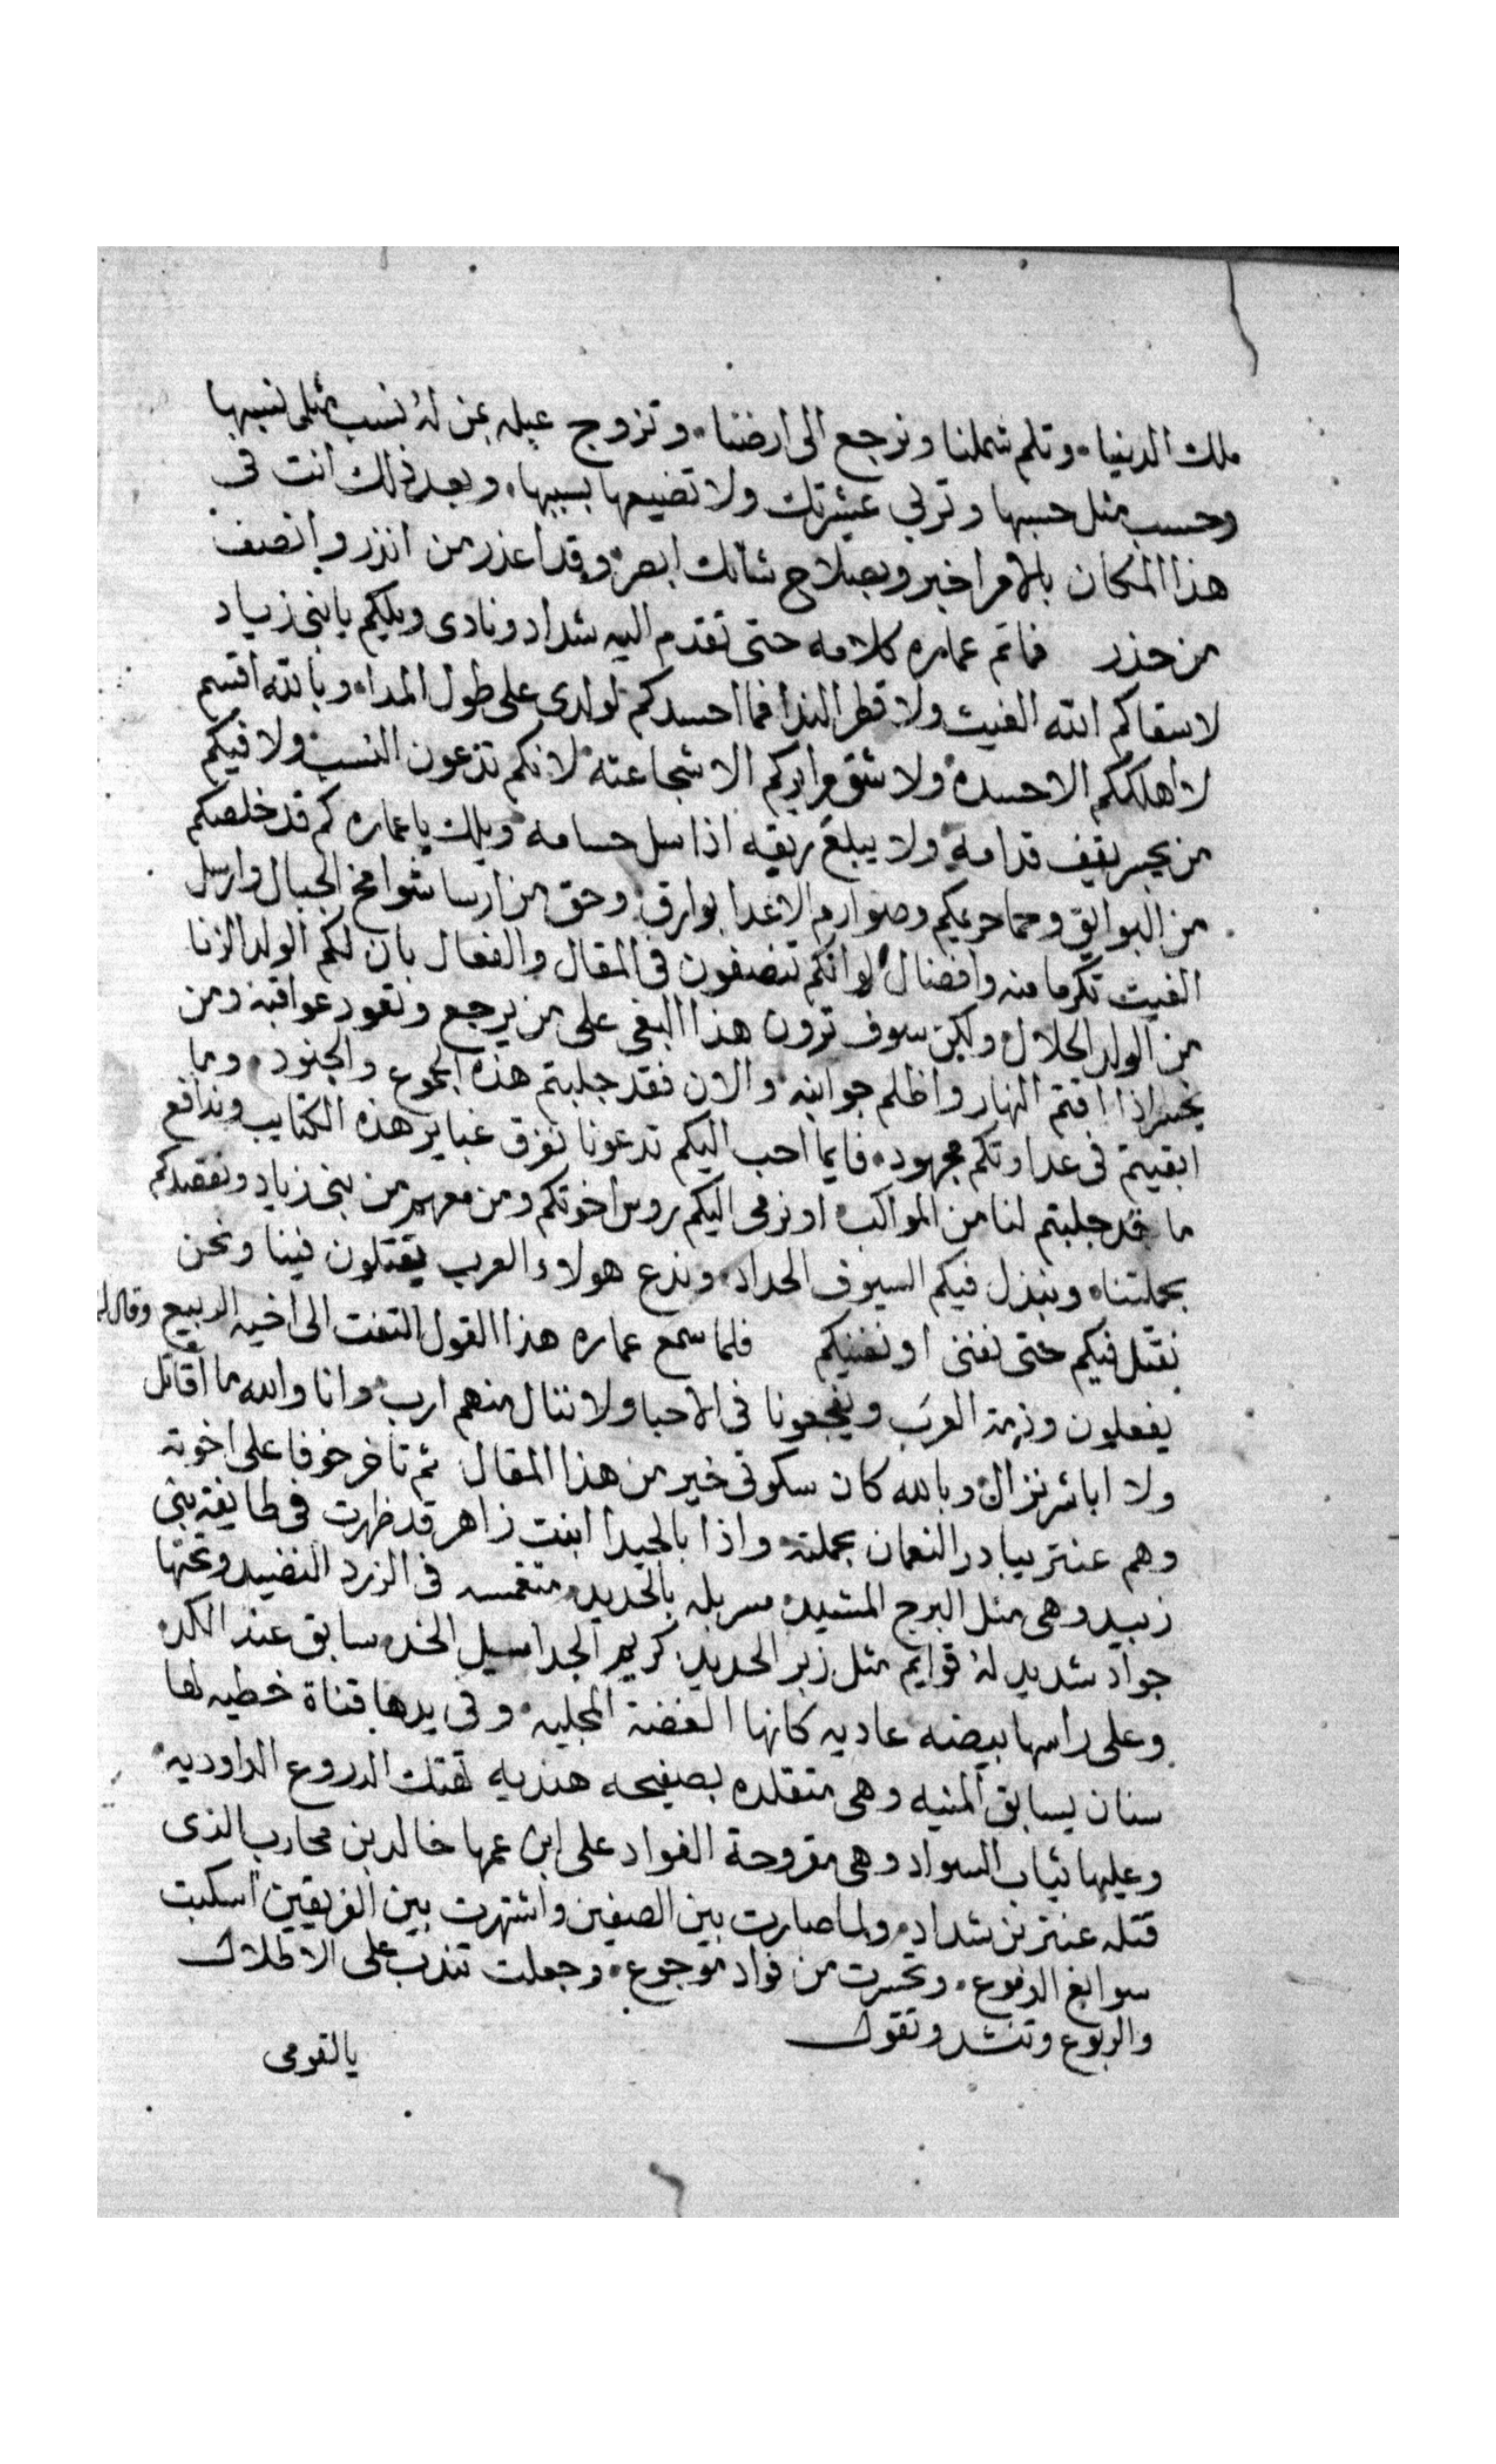 ملك الدنيا. وتلم شملنا ونرجع الى ارضنا. وتزوج عبله بمن لهُ نسب مثل نسبها
وحسب مثل حسبها وتربي عشيرتك ولا تضيعها بسببها. وبعد ذلك انت فى
هذا المكان بالامر اخبر وبصلاح شانك ابصر. وقد اعذر من انذر وانصف
من حذر فما تم عماره كلامه حتى تقدم اليه شداد ونادى ويلكم يا بنى زياد
لاسقاكم الله الغيث ولا قطر الندا فما احسدكم لولدى على طول المدا. وبالله اقسم
لا اهلككم الا حسده ولا شق مرايركم الا شجاعته. لانكم تدعون النسب ولا فيكم
من يجسر يقف قدامه ولا يبلع ريقه اذا سل حسامه. ويلك يا عماره كم قد خلصكم
من البوايق وحما حريمكم وصوارم الاعدا بوارق. وحق من ارسا شوامخ الجبال وارسل
الغيث تكرما منه وافضال. لو انكم تنصفون فى المقال والفعال بان لكم الولد الزنا
من الولد الحلال. ولكن سوف ترون هذا البغى على من يرجع وتعود عواقبه ومن
يخسر اذا اقتم النهار واظلم جوانبه. والان فقد جلبتم هذه الجموع والجنود. وما
ابقيتم فى عداوتكم مجهود. فايما احب اليكم تدعونا نفرق غباير هذه الكتايب وندافع
ما قد جلبتم لنا من المواكب. او نرمى اليكم روس اخوتكم ومن معهم من بنى زياد ونقصدكم
بحملتنا. ونبذل فيكم السيوف الحداد. وندع هولاء العرب يقتلون فينا ونحن
نقتل فيكم حتى نفنى او نفنيكم فلما سمع عماره هذا القول التفت الى اخيه الربيع وقال له
يفعلون وذمة العرب ويفجعونا فى الاحبا ولا ننال منهم ارب. وانا والله ما اقاتل
ولا اباشر نزال. وبالله كان سكوتى خير من هذا المقال ثم تاخر خوفا على اخوته
وهم عنتر يبادر النعمان بحملته. واذا بالجيدا ابنت زاهر قد ظهرت فى طايفة بنى
زبيد وهى مثل البرج المشيد. مسربله بالحديد. منغمسه فى الزرد النضيد وتحتها
جواد شديد لهُ قوايم مثل زبر الحديد. كريم الجد اسيل الخد. سابق عند الكد.
وعلى راسها بيضه عاديه كانها الفضة المجليه. وفى يدها قناة خطيه لها
سنان يسابق المنيه وهى متقلده بصفيحه هنديه تهتك الدروع الداوديه.
وعليها ثياب السواد وهى مقروحة الفواد على ابن عمها خالد بن محارب الذى
قتله عنتر بن شداد. ولما صارت بين الصفين واشتهرت بين الفريقين اسكبت
سوابغ الدموع. وتحسرت من فواد موجوع. وجعلت تندب على الاطلال
والربوع وتنشد وتقول
يالقومى